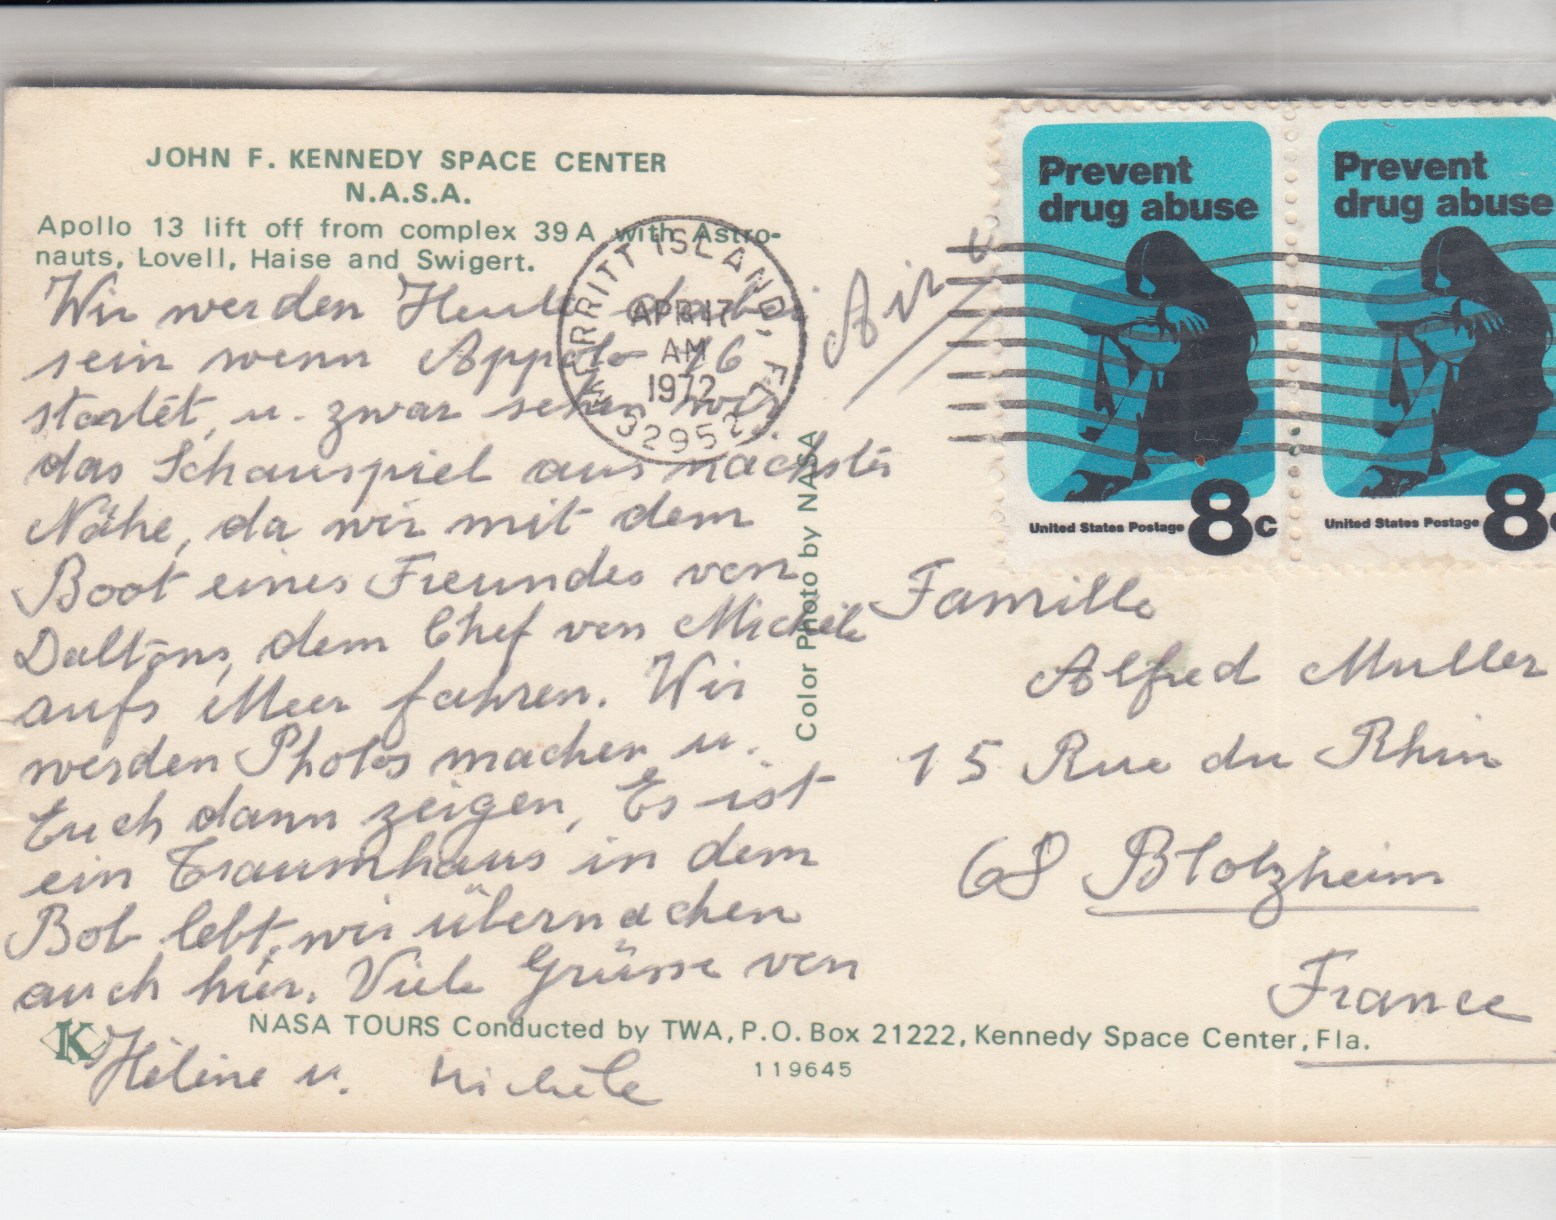 JOHN F. KENNEDY SPACE CENTER
N.A.S.A.
Apollo 13 lift off from complex 39A with Astro-
nauts, Lovell, Haise and Swigert.
Wir werden Heute dabei
sein wenn Appolo 16
startet, u. zwar sehen wir
das Schauspiel aus nächster
Nähe, da wir mit dem
Boot eines Freundes von
Daltons, dem Chef von Michèle
aufs Meer fahren. Wir
werden Photos machen u.
Euch dann zeigen, Es ist
ein Traumhaus in dem
Bob lebt, wir übernachen
auch hier. Viele Grüsse von
Hélène u. Michèle
K
NASA TOURS Conducted by TWA, P.O. Box 21222, Kennedy Space Center, Fla.
119645
Color Photo by NASA
MERRITT ISLAND, FL
APR 17
AM
1972
32952
Air
Prevent
drug abuse
United States Postage 8c
Prevent
drug abuse
United States Postage 8c
Famille
Alfred Muller
15 Rue du Rhin
68 Blotzheim
France